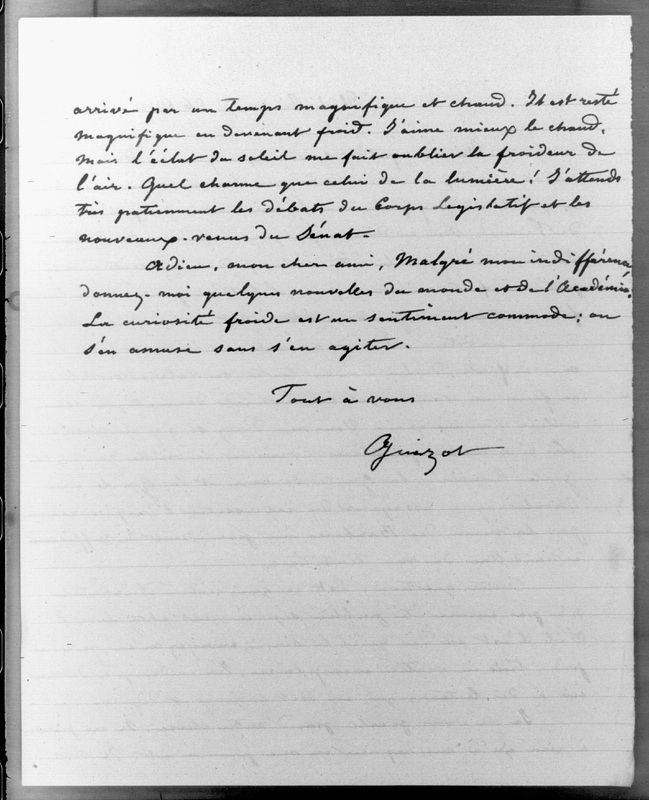 arrivé par un temps magnifique et chaud. Il est resté
magnifique en devenant froid. J'aime mieux le chaud,
mais l'éclat du soleil me fait oublier la froideur de
l'air. Quel charme que celui de la lumière ! J'attends
très patiemment les débats du Corps Législatif et les
nouveaux-venus du Sénat.
Adieu, mon cher ami, Malgré mon indifférence
donnez-moi quelques nouvelles du monde et de l'Académie.
La curiosité froide est un sentiment commode ; on
s'en amuse sans s'en agiter.
Tout à vous
Guizot